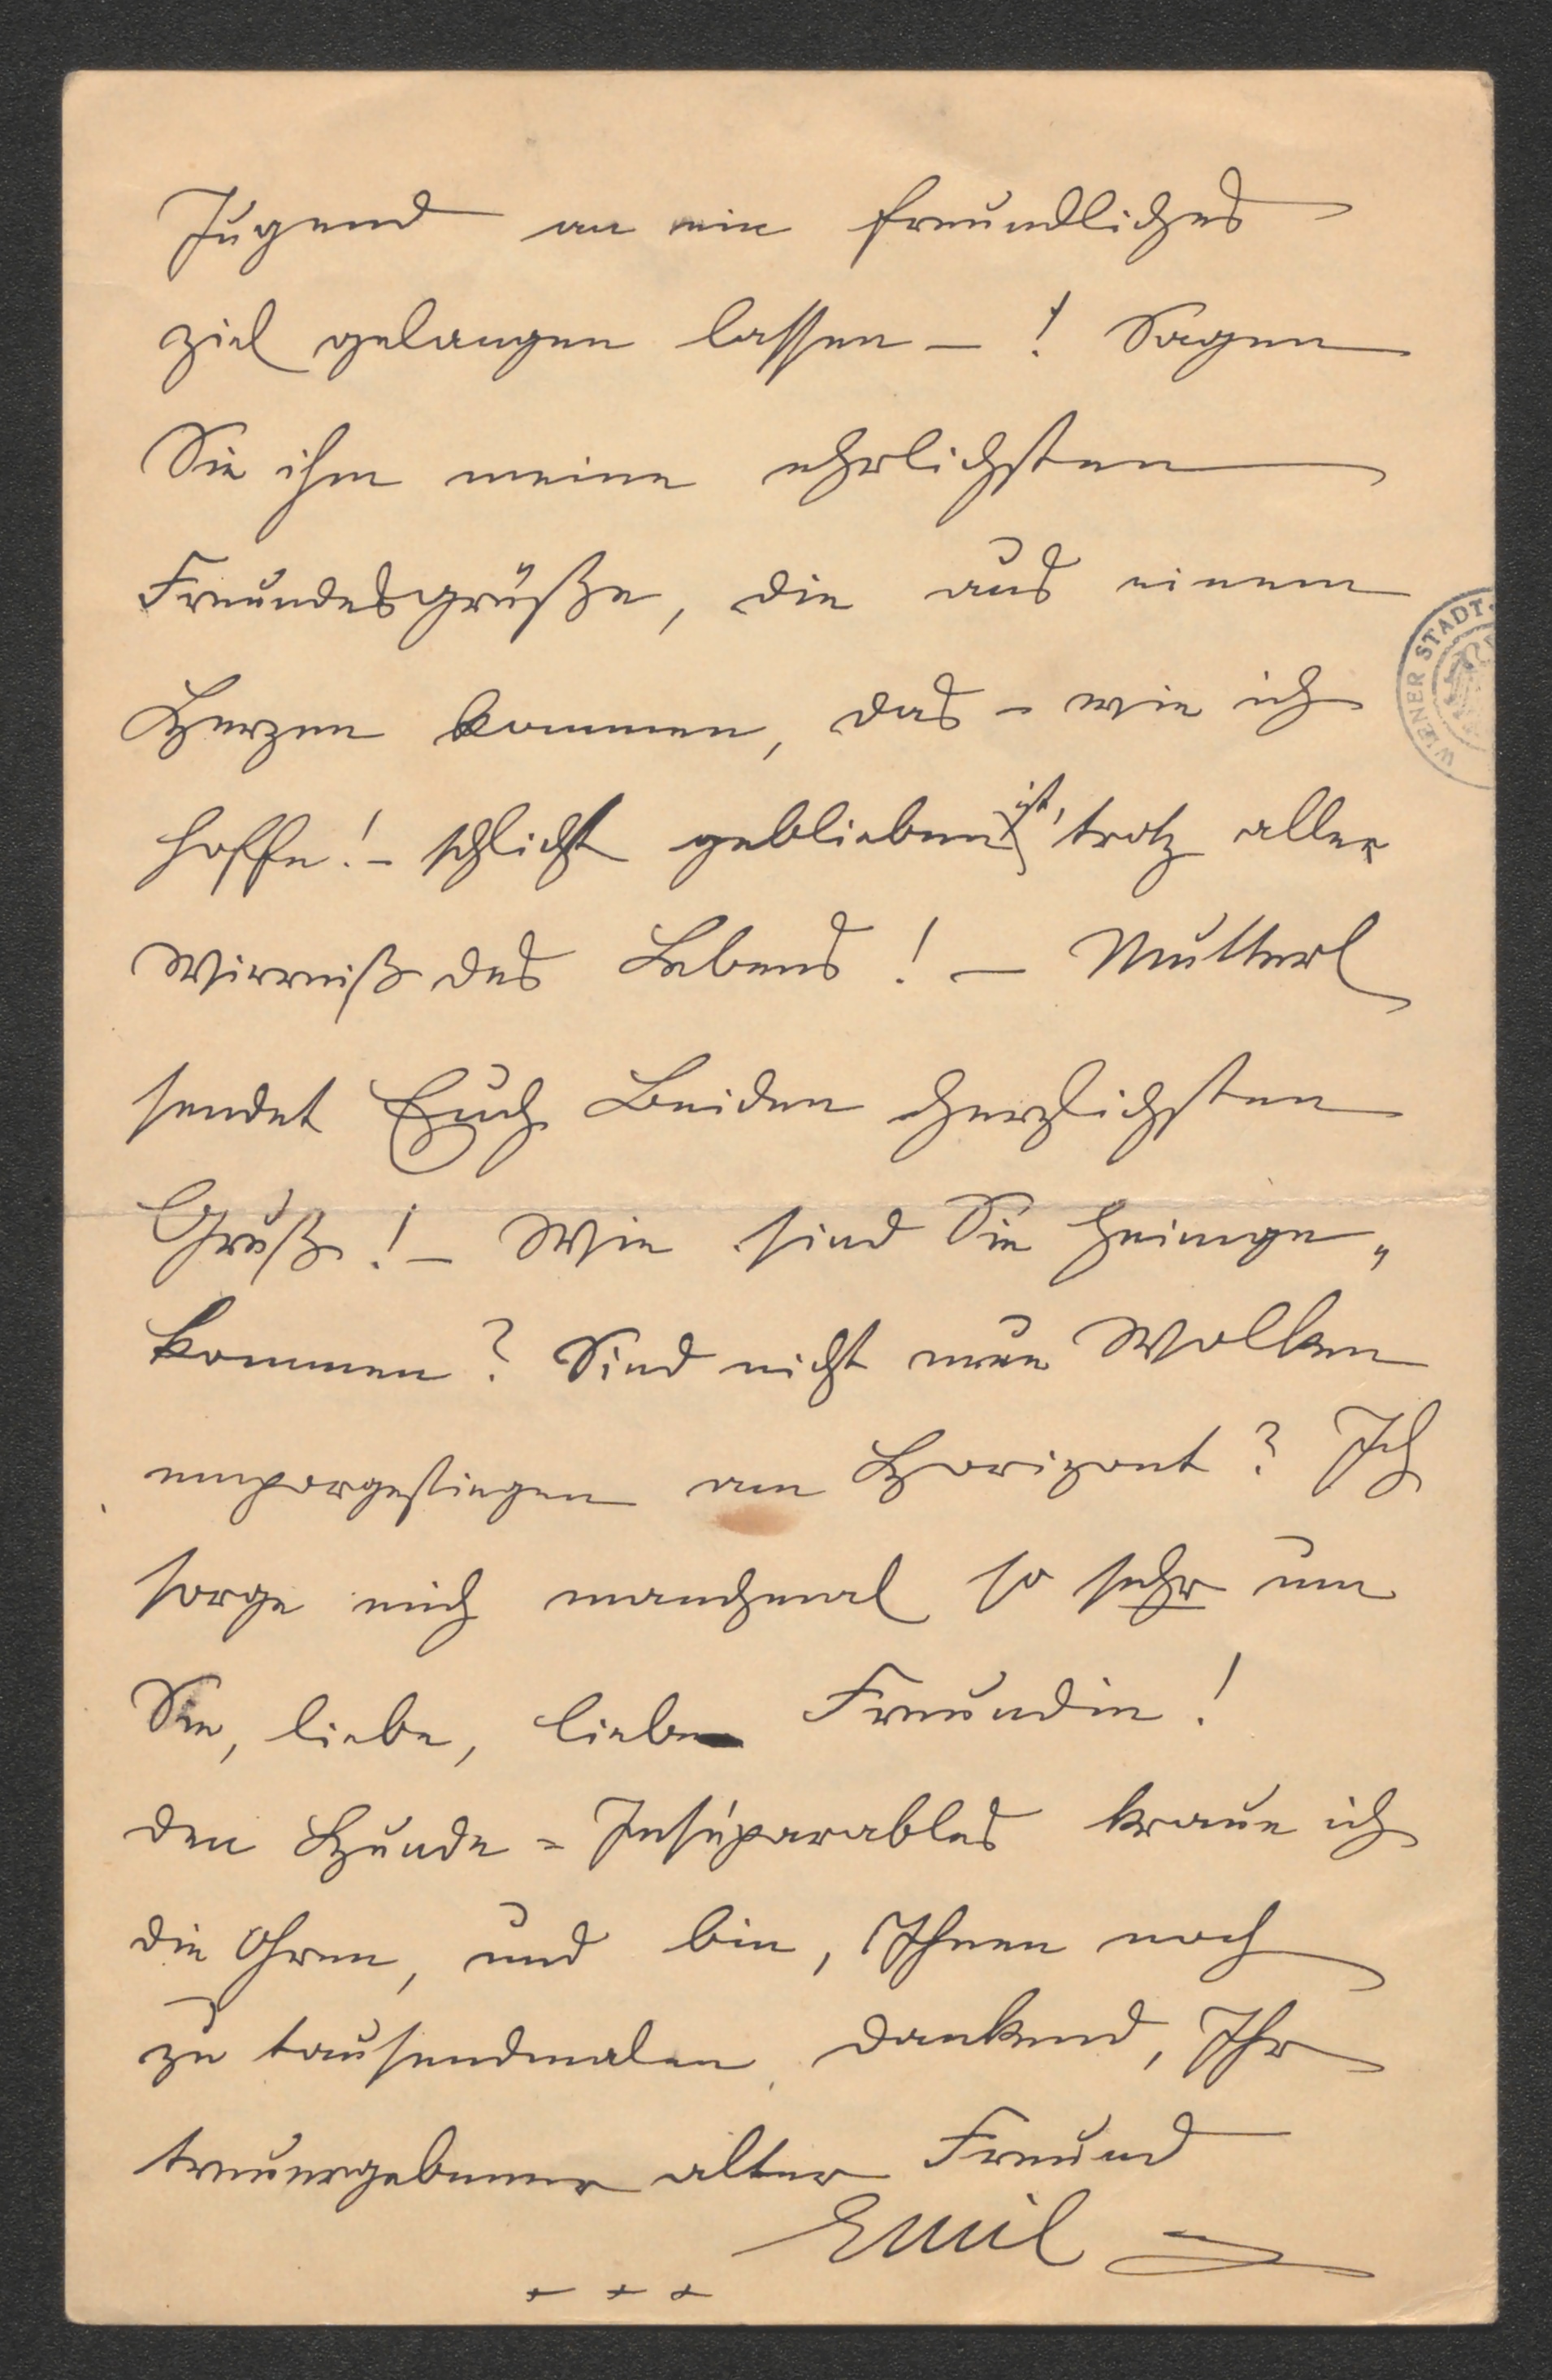 Jugend an ein freundliches
Ziel gelangen lassen – ! Sagen
Sie ihm meine ehrlichsten
Freundesgrüße, die aus einem
Herzen kommen, das – wie ich
hoffe! – schlicht geblieben ist, trotz aller
Wirrniß des Lebens! – Mutterl
sendet Euch Beiden herzlichsten
Gruß! – Wie sind Sie heimge„
kommen? Sind nicht neue Wolken
emporgestiegen am Horizont? Ich
sorge mich manchmal so sehr um
Sie, liebe, liebe Freundin!
Den Hunde = Inséparables kraue ich
die Ohren, und bin, Ihnen noch
zu tausendmalen dankend, Ihr
treuergebener alter Freund
Emil
+ + +
WIENER STADT-